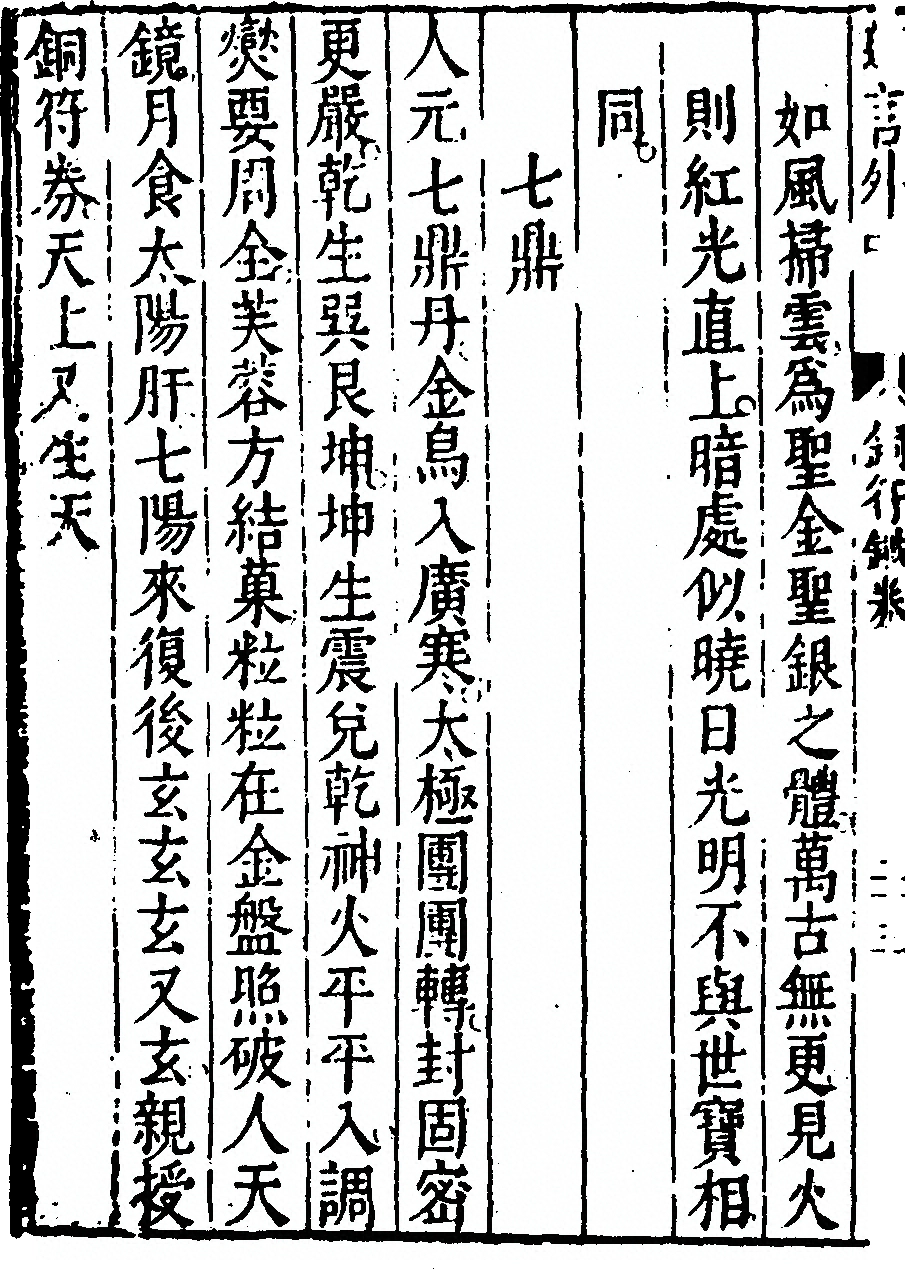 如風掃雲爲聖金聖銀之體萬古無更見火
則紅光直上暗處似曉日光明不與世寶相
同
七鼎
人元七鼎丹金烏入廣寒太極團團轉封固密
更嚴乾生巽艮坤坤生震兌乾神火平平入調
爕要周全芙蓉方結菓粒粒在金盤照破人天
鏡月食太陽肝七陽來復後玄玄玄又玄親授
銅符券天上又生天